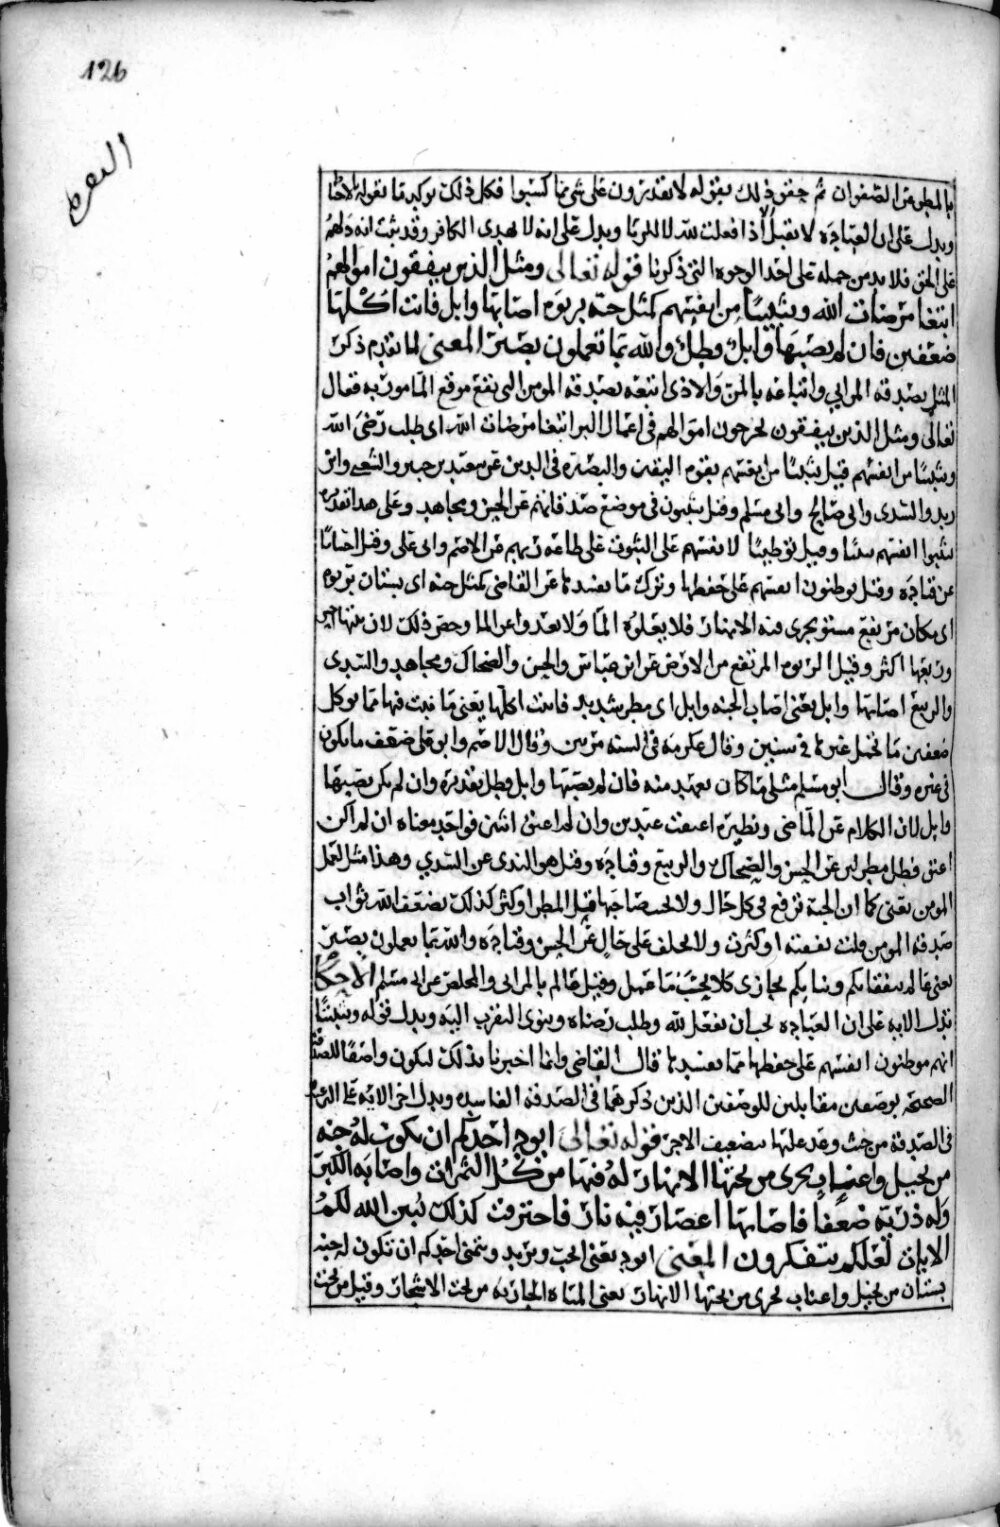 126
البقرة
بالمطر من الصفوان ثم حقق ذلك بقوله لا يقدرون على شي مما كسبوا فكل ذلك توكيد ما نقوله بالاحباط
ويدل على ان العبادة لا تقبل الا اذا فعلت لله لا للريا ويدل على انه لا يهدى الكافر وقد ثبت انه دلهم
على الحق فلا بد من حمله على احد الوجوه التى ذكرنا قوله تعالى ومثل الذين ينفقون اموالهم
ابتغا مرضات الله وتثبيتا من انفسهم كمثل جنة بربوة اصابها وابل فاتت اكلها
ضعفين فان لم يصبها وابل فطل والله بما تعملون بصير المعنى لما تقدم ذكر
المثل بصدقة المرايي واتباعه بالمن والاذى اتبعه بصدقة المومن التى تقع موقع المامور به فقال
تعالى ومثل الذين ينفقون يخرجون اموالهم فى اعمال البر ابتغا مرضات الله اى طلب رضى الله
وتثبيتا من انفسهم قيل تثبيتا من انفسهم بقوة اليقين والبصيرة فى الدين عن سعيد بن جبير والشعبي وابن
زيد والسدى وابى صالح وابى مسلم وقيل يتثبتون فى موضع صدقاتهم عن الحسن ومجاهد وعلى هذا تقديره
يثبتوا انفسهم تثبيتا وقيل توطينا لانفسهم على الثبوت على طاعة ربهم عن الاصم وابى على وقيل احتسابا
عن قتادة وقيل يوطنون انفسهم على حفظها وترك ما يفسدها عن القاضى كمثل جنة اى بستان بربوة
اى مكان مرتفع مستو يجرى فيه الانهار فلا يعلوه الما ولا يعدوا عن الما وخص ذلك لان نبتها احسن
وريعها اكثر وقيل الربوة المرتفع من الارض عن ابن عباس والحسن والضحاك ومجاهد والسدى
والربيع اصابها وابل يعنى اصاب الجنة وابل اى مطر شديد فاتت اكلها يعنى ما نبت فيها مما يوكل
ضعفين ما تحمل غيرها فى سنين وقال عكرمة فى السنة مرتين وقال الاصم وابو على ضعف ما يكون
فى غيره وقال ابو مسلم مثلى ما كان يعهد منه فان لم يصبها وابل فطل تقديره وان لم يكن يصيبها
وابل لان الكلام عن الماضى ونظيره اعتقت عبدين وان لم اعتق اثنين فواحد معناه ان لم اكن
اعتق فطل مطر لين عن الحسن والضحاك والربيع وقتادة وقيل هو الندى عن السدي وهذا مثل لعمل
المومن يعنى كما ان الجنة تريع فى كل حال ولا يخيب صاحبها قل المطر او كثر كذلك يضعف الله ثواب
صدقة المومن قلت نفقته او كثرت ولا يخلف على حال عن الحسن وقتادة والله بما يعملون بصير
يعنى عالم بنفقاتكم ونياتكم يجازى كلا بحسب ما عمل وقيل عالم بالمرائى والمخلص عن ابى مسلم الاحكام
تدل الاية على ان العبادة يجب ان تفعل لله وطلب رضاه وينوى التقرب اليه ويدل قوله وتثبيتا
انهم موطنون انفسهم على حفظها مما يفسدها قال القاضى وانما اخبرنا بذلك ليكون واصفا للصدقة
الصحيحة بوصفين مقابلين للوصفين الذين ذكرهما فى الصدقة الفاسدة ويدل اخر الاية على الترغيب
فى الصدقة من حيث وعد عليها بتضعيف الاجر قوله تعالى ايود احدكم ان يكون له جنة
من نخيل واعناب يجرى من تحتها الانهار له فيها من كل الثمرات واصابه الكبر
وله ذرية ضعفا فاصابها اعصار فيه نار فاحترقت كذلك يبين الله لكم
الايات لعلكم تتفكرون المعنى ايود يعنى ايحب ويريد ويتمنى احدكم ان تكون له جنة
بستان من نخيل واعناب تجرى من تحتها الانهار يعنى المياه الجارية من تحت الاشجار وقيل من تحت